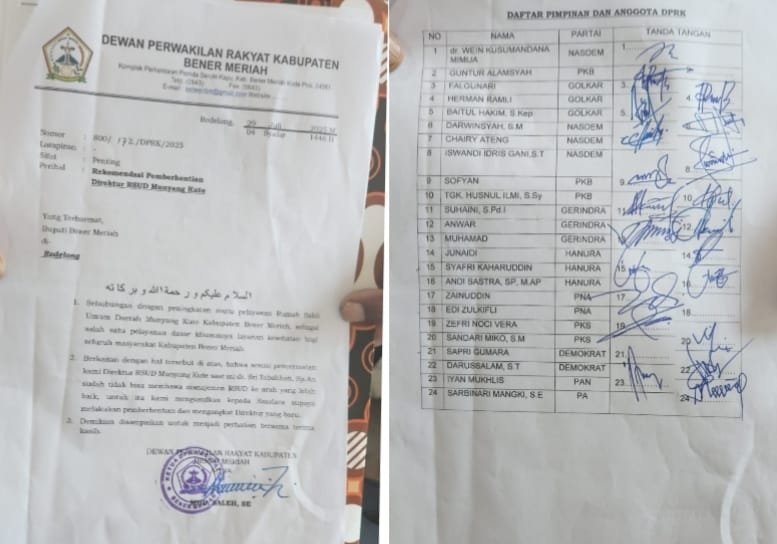 DEWAN PERWAKILAN RAKYAT KABUPATEN
BENER MERIAH
Komplek Perkantoran Pemda Serule Kayu, Kab. Bener Meriah Kode Pos. 24581
Telp. (0643) Fax. (0643)
Redelong, 29 Juli 2025 M
04 1446 H
Nomor : 800/172/DPRK/2025
Lampiran : -
Sifat : Penting
Perihal : Rekomendasi Pemberhentian
Direktur RSUD Munyang Kute
Yang Terhormat,
Bupati Bener Meriah
di-
Redelong
السلام عليكم ورحمة الله وبركاته
1. Sehubungan dengan peningkatan mutu pelayanan Rumah Sakit
Umum Daerah Munyang Kute Kabupaten Bener Meriah, sebagai
salah satu pelayanan dasar khususnya layanan kesehatan bagi
seluruh masyarakat Kabupaten Bener Meriah.
2. Berkenaan dengan hal tersebut di atas, bahwa sesuai pencermatan
kami Direktur RSUD Munyang Kute saat ini dr. Sri Tabahhati, Sp.An
sudah tidak bisa membawa manajemen RSUD ke arah yang lebih
baik, untuk itu kami mengusulkan kepada Saudara supaya
melakukan pemberhentian dan mengangkat Direktur yang baru.
3. Demikian disampaikan untuk menjadi perhatian bersama terima
kasih.
DEWAN PERWAKILAN RAKYAT KABUPATEN
BENER MERIAH
MHD. SALEH, SE
DAFTAR PIMPINAN DAN ANGGOTA DPRK
NO NAMA PARTAI TANDA TANGAN
1 dr. WEIN KUSUMANDANA MIMIJA NASDEM 1
2 GUNTUR ALAMSYAH PKB
3 FALGUNARI GOLKAR 3
4 HERMAN RAMLI GOLKAR 4
5 BAITUL HAKIM, S.Kep GOLKAR 5
6 DARWINSYAH, S.M NASDEM
7 CHAIRY ATENG NASDEM
8 ISWANDI IDRIS GANI,S.T NASDEM 8
9 SOFYAN PKB 9
10 TGK. HUSNUL ILMI, S.Sy PKB 10
11 SUHAINI, S.Pd.I GERINDRA 11
12 ANWAR GERINDRA 12
13 MUHAMAD GERINDRA 13
14 JUNAIDI HANURA 14
15 SYAFRI KAHARUDDIN HANURA 15
16 ANDI SASTRA, SP, M.AP HANURA 16
17 ZAINUDDIN PNA 17
18 EDI ZULKIFLI PNA 18
19 ZEFRI NOCI VERA PKS 19
20 SANDARI MIKO, S.M PKS 20
21 SAPRI GUMARA DEMOKRAT 21
22 DARUSSALAM, S.T DEMOKRAT 22
23 IYAN MUKHLIS PAN 23
24 SARBINARI MANGKI, S.E PA 24